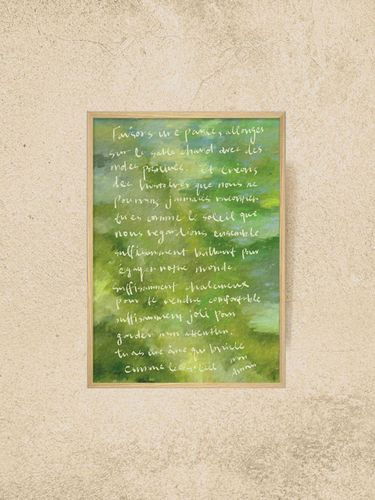 Faisons une pause, allongés
sur le sable chaud avec des
et créons
des histoires que nous ne
pourrons jamais raconter
tu es comme le soleil que
nous regardions ensemble
suffisamment brillant pour
égayer notre monde
suffisamment chaleureux
pour te rendre confortable
suffisamment joli pour
garder mon attention
tu as une âme qui brille
comme le soleil mon